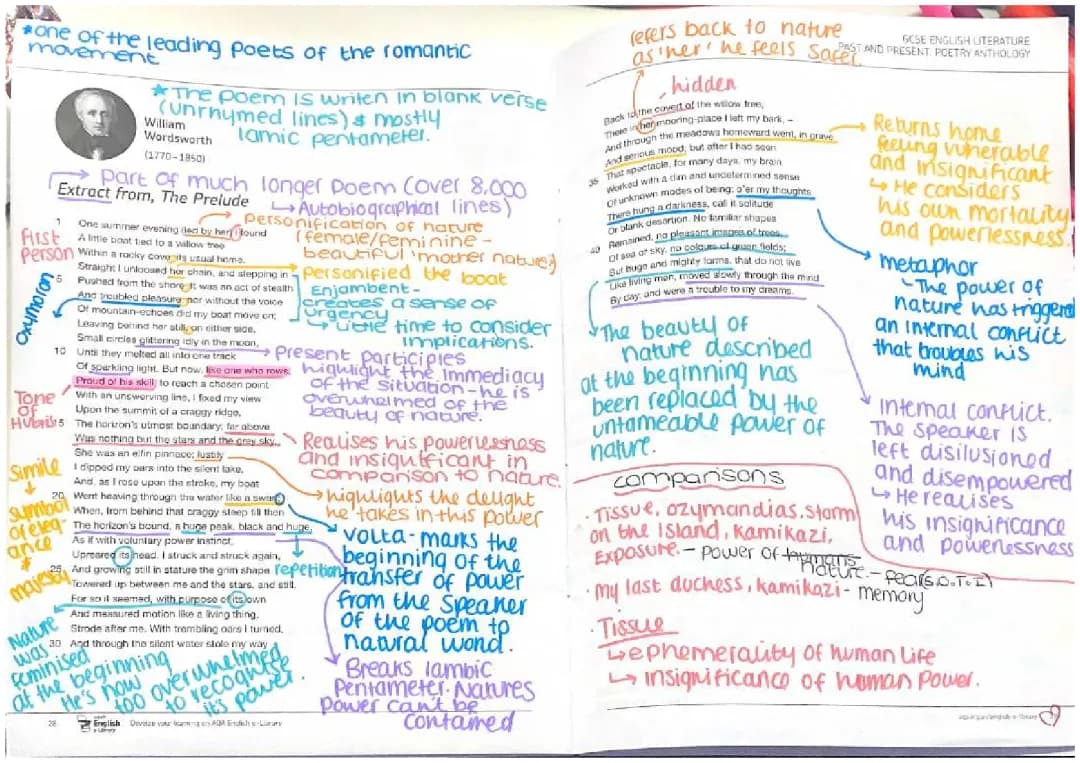 *one of the leading poets of the romantic
movement
* The poem is writen in blank verse
(unrhymed lines) & mostly
iamic pentameter.
William
Wordsworth
(1770–1850)
Part of much longer poem (over 8,000
↳ Autobiographical lines)
Extract from, The Prelude
1 One summer evening (led by her) I found
A little boat tied to a willow tree
Within a rocky cove, its usual home.
Straight I unloosed her chain, and stepping in
5 Pushed from the shore. It was an act of stealth
And troubled pleasure, nor without the voice
Of mountain-echoes did my boat move on;
Leaving behind her still, on either side,
Small circles glittering idly in the moon,
10 Until they melted all into one track
Of sparkling light. But now, like one who rows,
Proud of his skill, to reach a chosen point
With an unswerving line, I fixed my view
Upon the summit of a craggy ridge,
15 The horizon's utmost boundary; far above
Was nothing but the stars and the grey sky.
She was an elfin pinnace; lustily
I dipped my oars into the silent lake,
And, as I rose upon the stroke, my boat
20 Went heaving through the water like a swan;
When, from behind that craggy steep till then
The horizon's bound, a huge peak, black and huge,
As if with voluntary power instinct,
Upreared its head. I struck and struck again,
25 And growing still in stature the grim shape
Towered up between me and the stars, and still,
For so it seemed, with purpose of its own
And measured motion like a living thing,
Strode after me. With trembling oars I turned,
30 And through the silent water stole my way
First
Person
oxymoron
Tone
of
Hubris
Simile
symbol
of eleg-
ance
&
majesty
Nature
was
feminised
at the beginning
He's now
too overwhelmed
to recognise
its power.
personification of nature
(female/feminine -
beautiful 'mother nature')
Personified the boat
Enjambent-
creates a sense of
urgency
↳ Little time to consider
implications.
Present participles
highlight the immediacy
of the situation - he is
overwhelmed of the
beauty of nature.
Realises his powerlessness
and insignificant in
comparison to nature.
highlights the delight
he takes in this power
volta - marks the
beginning of the
transfer of power
from the speaker
of the poem to
natural world.
repetition
Breaks Iambic
Pentameter. Natures
power can't be
contained
28
English
e-Library
Develop your learning on AQA English e-Library
refers back to nature
as 'her' he feels safer
GCSE ENGLISH LITERATURE
PAST AND PRESENT: POETRY ANTHOLOGY
hidden
Back to the covert of the willow tree;
There in her mooring-place I left my bark, –
And through the meadows homeward went, in grave
And serious mood; but after I had seen
35 That spectacle, for many days, my brain
Worked with a dim and undetermined sense
Of unknown modes of being; o'er my thoughts
There hung a darkness, call it solitude
Or blank desertion. No familiar shapes
40 Remained, no pleasant images of trees,
Of sea or sky, no colours of green fields;
But huge and mighty forms, that do not live
Like living men, moved slowly through the mind
By day, and were a trouble to my dreams.
Returns home
feeling vunerable
and insignificant
↳ He considers
his own mortality
and powerlessness.
metaphor
↳ The power of
nature has triggered
an internal conflict
that troubles his
mind
The beauty of
nature described
at the beginning has
been replaced by the
untameable power of
nature.
Internal conflict.
The speaker is
left disilusioned
and disempowered
↳ He realises
his insignificance
and powerlessness
comparisons
· Tissue, ozymandias, storm
on the Island, kamikazi,
Exposure. – power of humans
nature – fear (S.O.T.I)
· my last duchess, kamikazi – memory
· Tissue
↳ ephemerality of human life
↳ insignificance of human power.